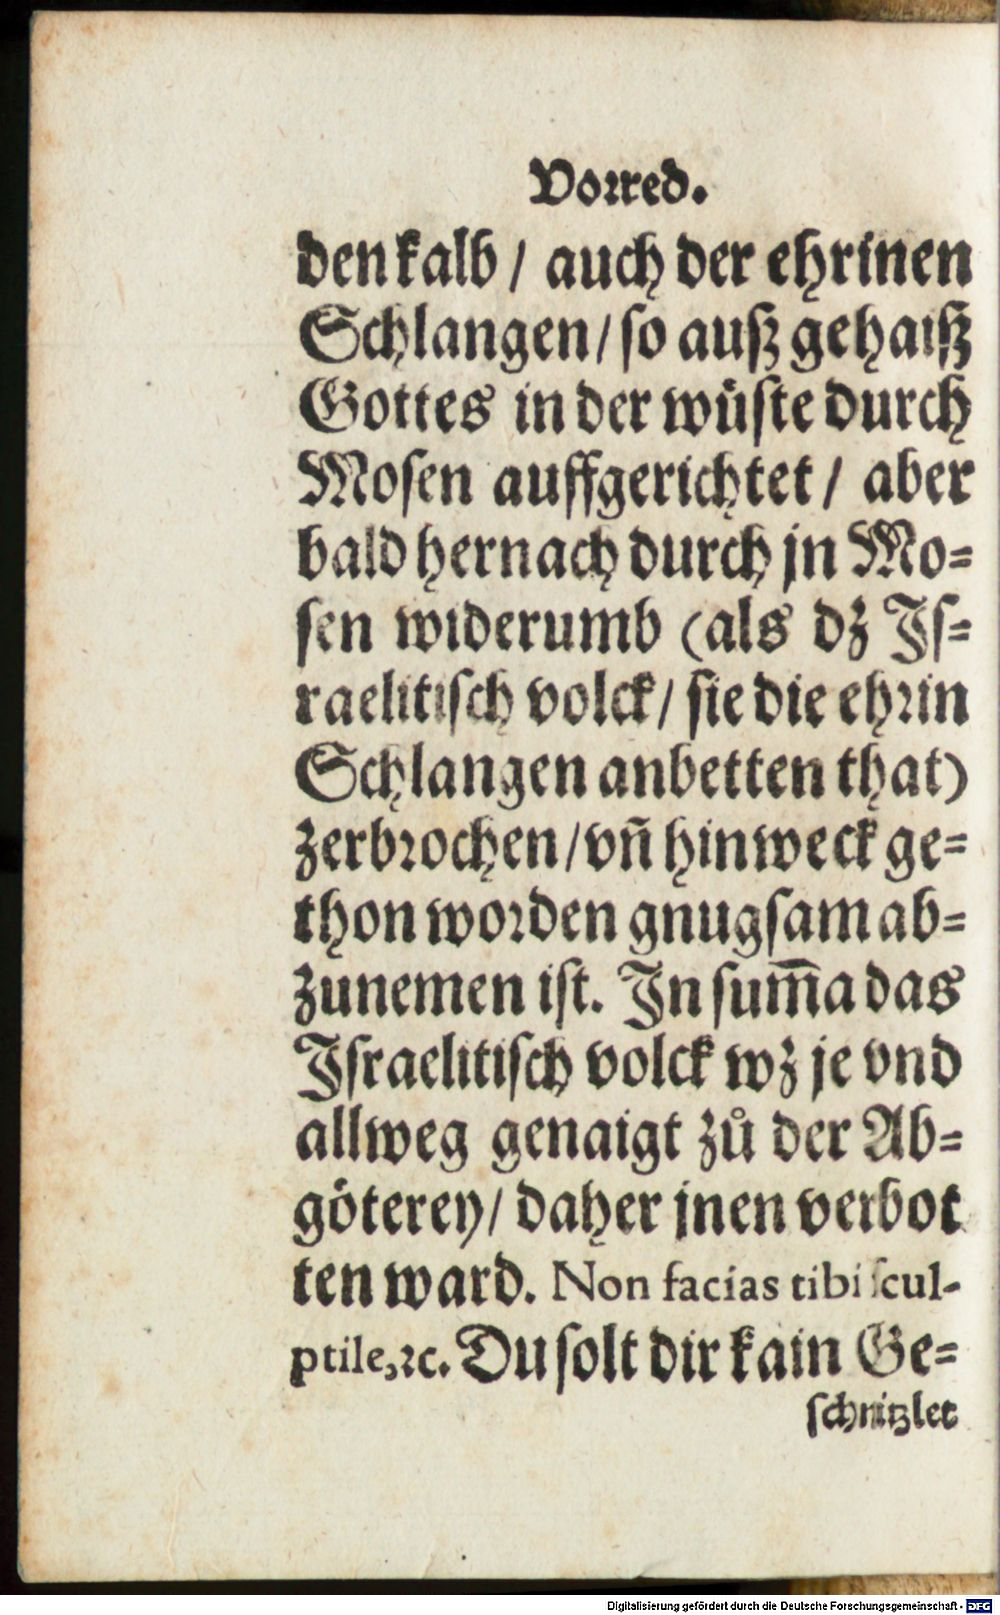 Vorred.
den kalb / auch der ehrinen
Schlangen / so auß gehaiß
Gottes in der wüste durch
Mosen auffgerichtet / aber
bald hernach durch jn Mo=
sen widerumb (als dz Is=
raelitisch volck / sie die ehrin
Schlangen anbetten that)
zerbrochen / vñ hinweck ge=
thon worden gnugsam ab=
zunemen ist. In sum̄a das
Israelitisch volck wz je vnd
allweg genaigt zů der Ab=
göterey / daher jnen verbot
ten ward. Non facias tibi scul-
ptile, ꝛc. Du solt dir kain Ge=
schnitzlet
Digitalisierung gefördert durch die Deutsche Forschungsgemeinschaft - DFG